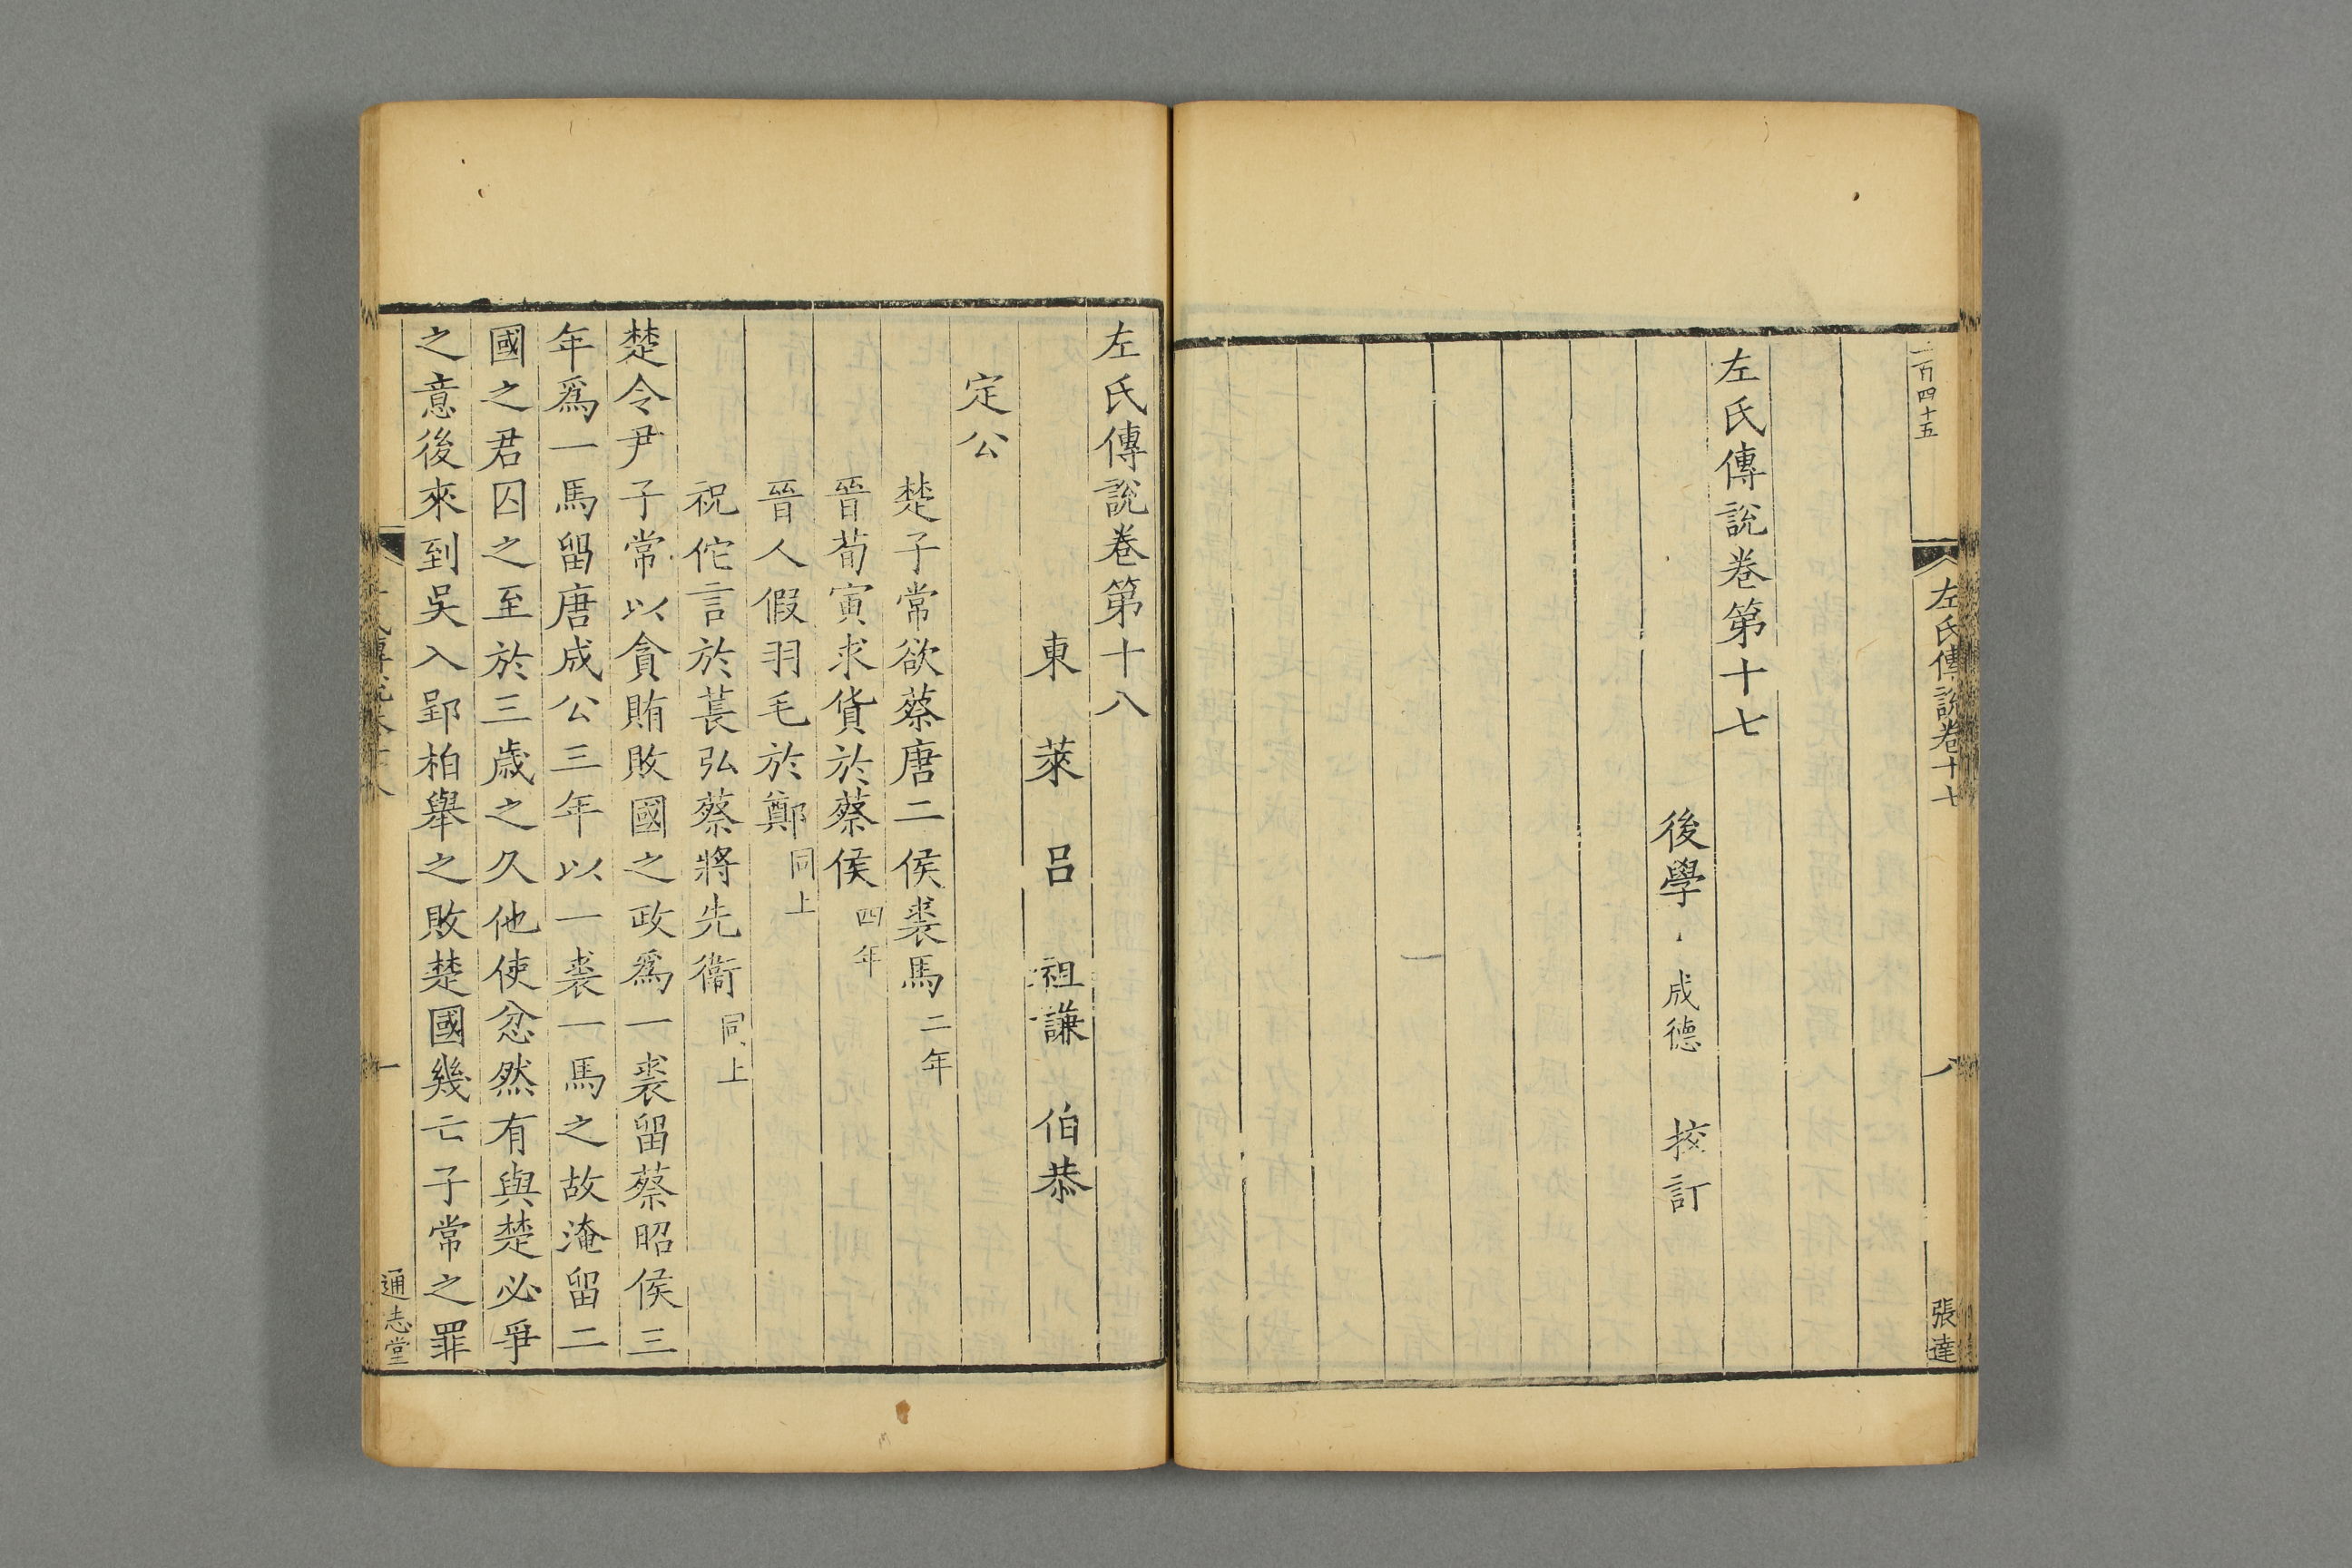 一百四十五
左氏傳說卷十七
八
張達
左氏傳說卷第十七
後學 成德 挍訂
左氏傳說卷第十八
東萊呂祖謙伯恭
定公
楚子常欲蔡唐二侯裘馬二年
晉荀寅求貨於蔡侯四年
晉人假羽毛於鄭同上
祝佗言於萇弘蔡將先衞同上
楚令尹子常以貪賄敗國之政爲一裘留蔡昭侯三
年爲一馬留唐成公三年以一裘一馬之故淹留二
國之君囚之至於三歲之久他使忿然有與楚必爭
之意後來到吳入郢柏舉之敗楚國幾亡子常之罪
一
通志堂